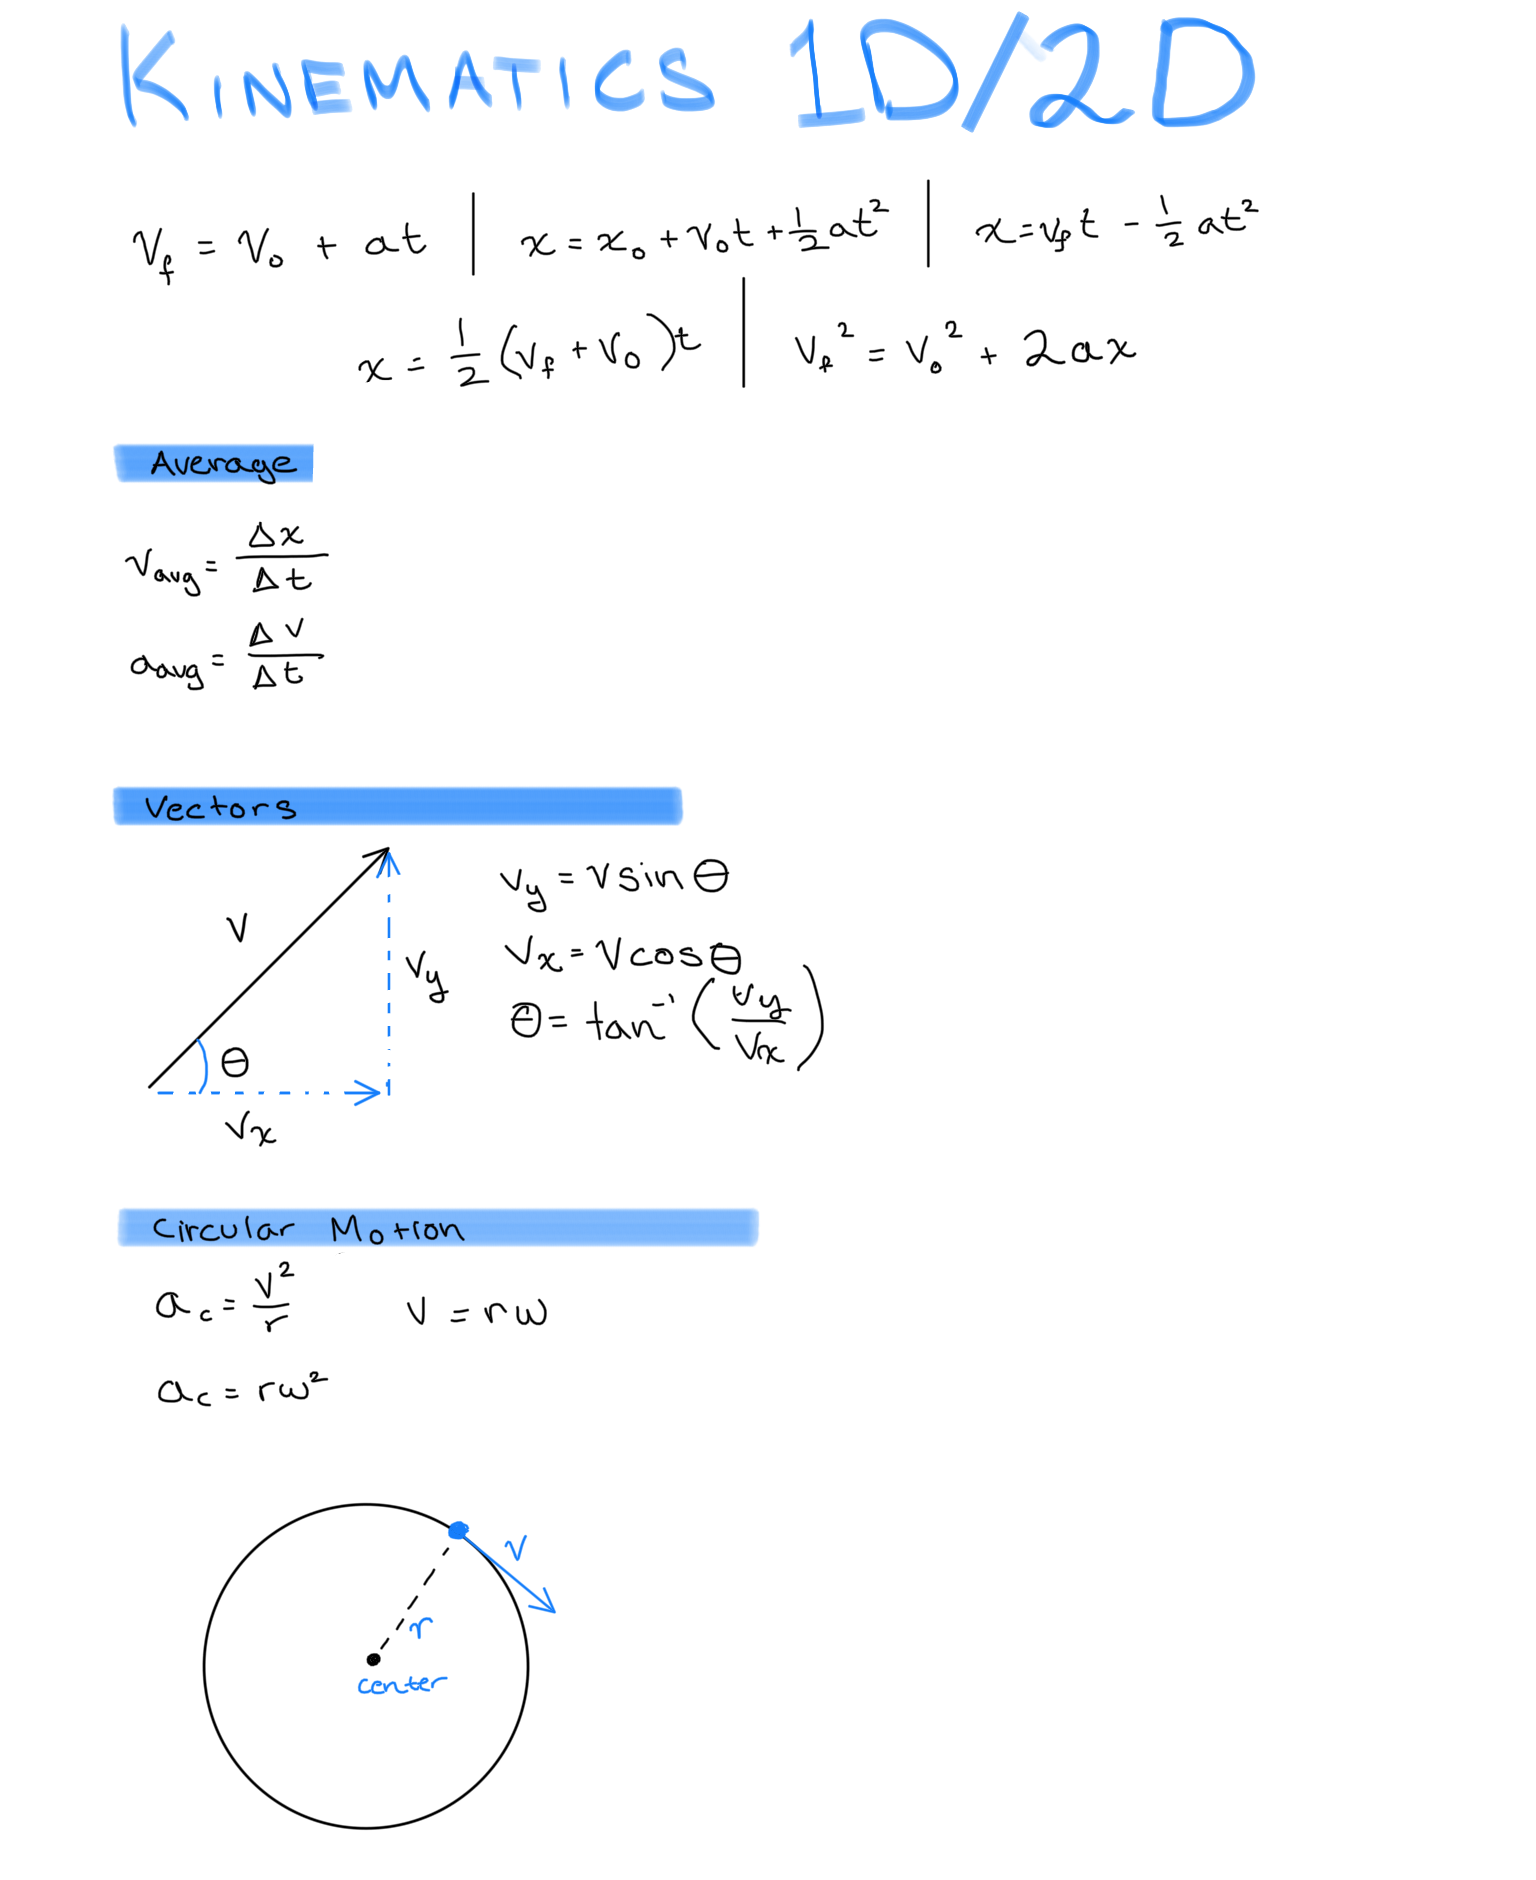 KINEMATICS 1D/2D
V_f = V_o + at | x = x_o + v_o t + 1/2 at² | x = v_f t - 1/2 at²
x = 1/2 (v_f + v_o)t | v_f² = v_o² + 2ax
Average
v_avg = Δx/Δt
a_avg = Δv/Δt
Vectors
v_y = v sin θ
V
v_x = v cos θ
v_y
θ = tan⁻¹ (v_y/v_x)
θ
v_x
Circular Motion
a_c = v²/r v = rω
a_c = rω²
v
r
center